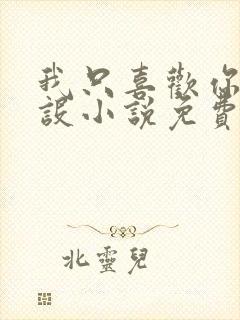 我只喜歡你
設小說免費
北靈兒